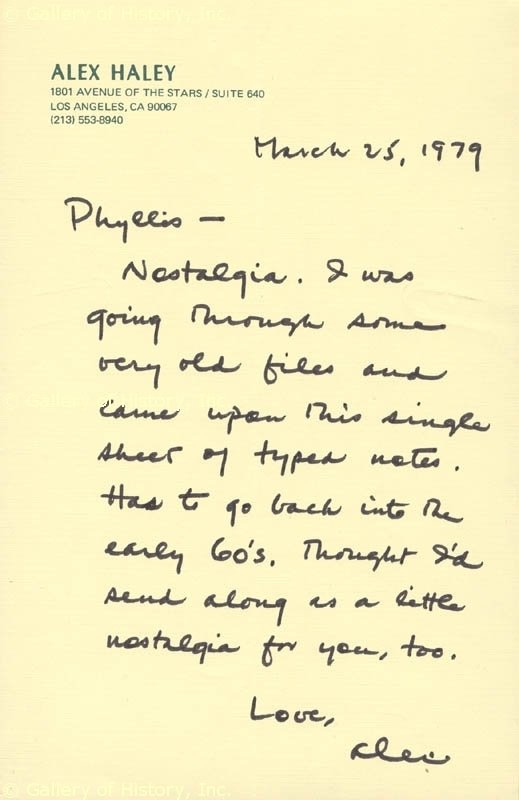 © Gallery of History, Inc.
ALEX HALEY
1801 AVENUE OF THE STARS / SUITE 640
LOS ANGELES, CA 90067
(213) 553-8940
March 25, 1979
Phyllis —
Nostalgia. I was
going through some
very old files and
© Gallery of History, Inc.
came upon this single
sheet of typed notes.
Has to go back into the
early 60's. Thought I'd
send along as a little
nostalgia for you, too.
Love,
Alex
© Gallery of History, Inc.